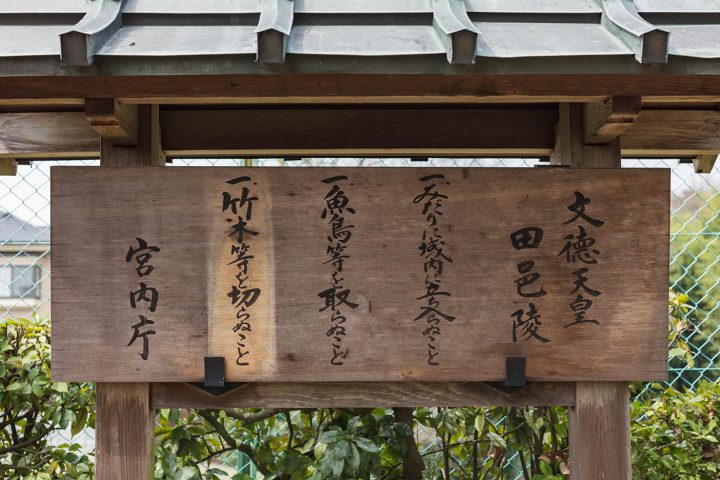 文徳天皇
田邑陵
一、みだりに域内に立入らぬこと
一、魚鳥等を取らぬこと
一、竹木等を切らぬこと
宮内庁